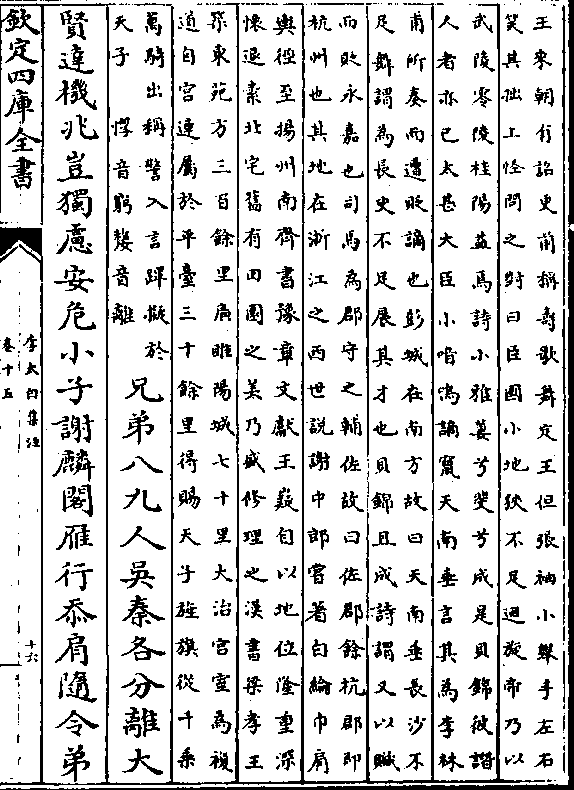 王來朝有詔更前稱壽歌舞定王但張袖小舉手左右
笑其拙上怪問之對曰臣國小地狹不足迴旋帝乃以
武陵零陵桂陽益焉詩小雅萋兮斐兮成是貝錦彼譖
人者亦已太甚大臣小喑鳴謫竄天南垂言其為李林
甫所奏而遭貶謫也彭城在南方故曰天南垂長沙不
足舞謂為長史不足展其才也貝錦且成詩謂又以贓
而敗永嘉也司馬為郡守之輔佐故曰佐郡餘杭郡即
杭州也其地在浙江之西世說謝中郎嘗著白綸巾肩
輿徑至揚州南齊書豫章文獻王嶷自以地位隆重深
懷退素北宅舊有田園之美乃盛修理之漢書梁孝王
築東苑方三百餘里廣睢陽城七十里大治宮室為複
道自宮連屬於平臺三十餘里得賜天子旌旗從千乘
萬騎出稱警入言蹕擬於
天子 悍音 嫠音離
兄弟八九人吳秦各分離大
賢達機兆豈獨慮安危小子謝麟閣雁行忝肩隨令弟
欽定四庫全書
李太白集注
卷十五
十六